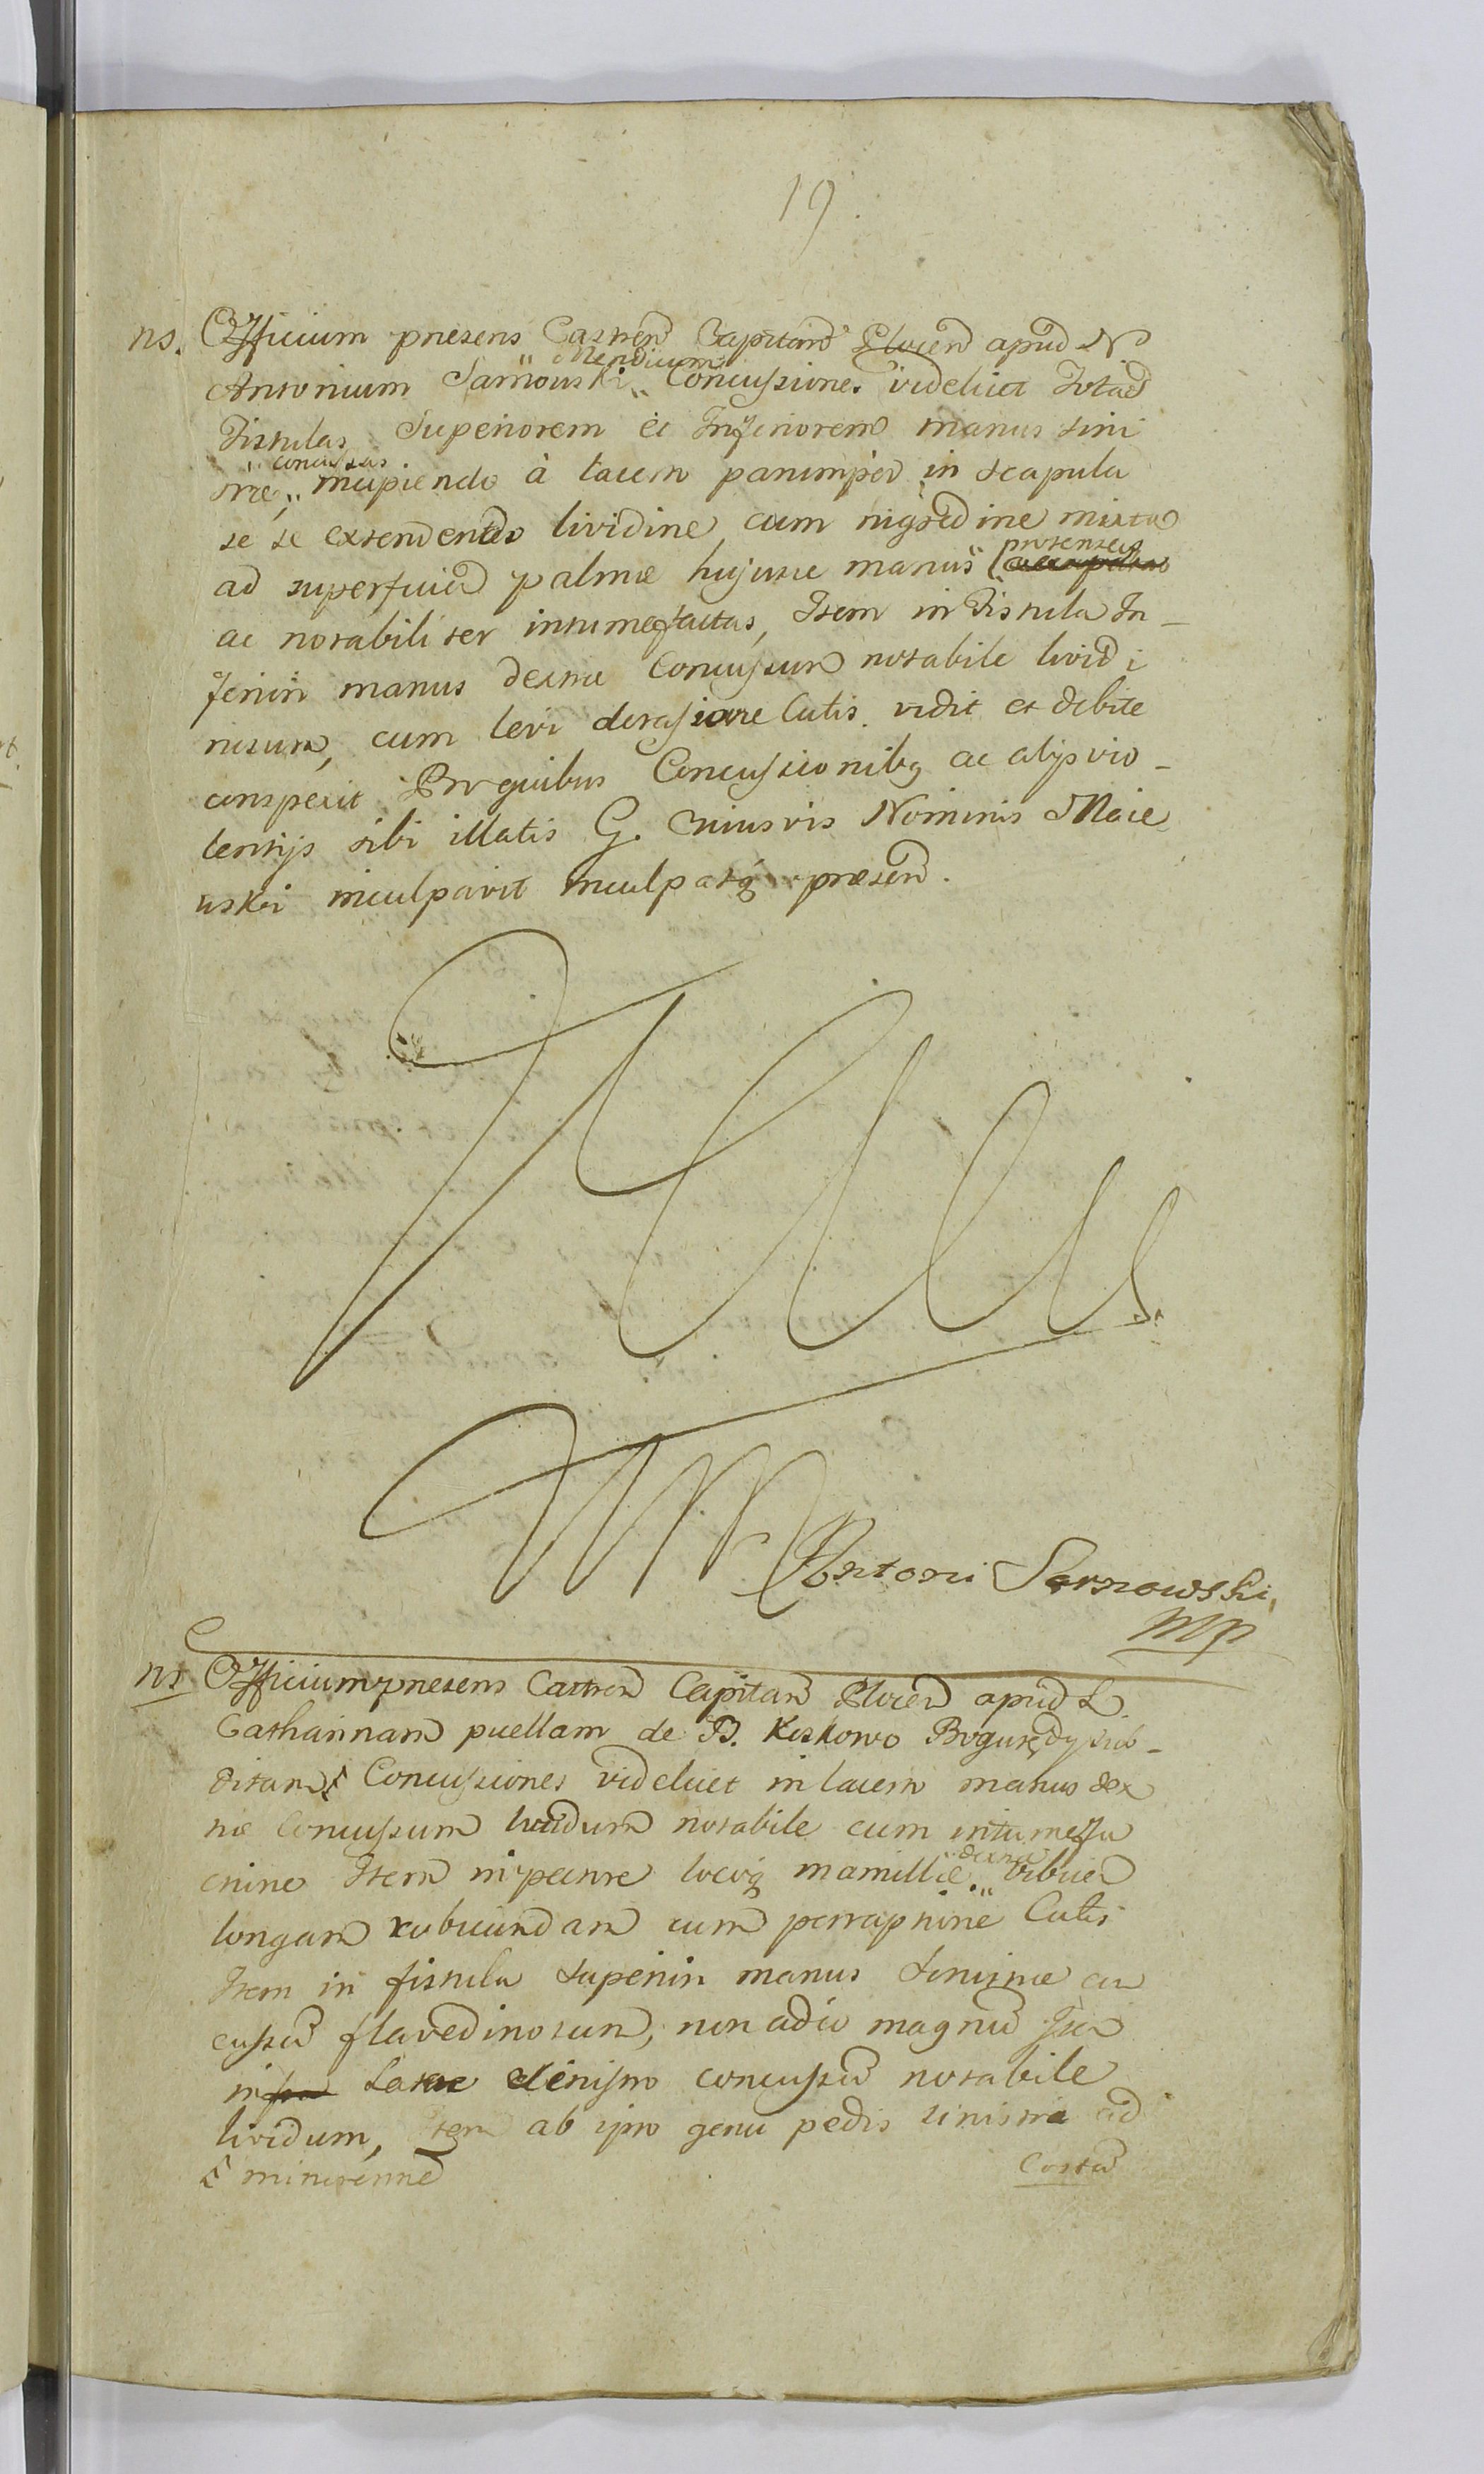 19.
ns. Officium præsens Castren Capitan Plocen apud N
Mendicum
Antonium Sarnowski Concussiones videlicet Totas
Fistulas Superiorem et Inferiorem manus sini
concussas
stræ, incipiendo à lacerto parumper in scapula
se se extendentes lividine cum nigredine mixta
protensas
ad superficiem palmæ hujusce manus
ac notabiliter intumefactas, Item in Fistula In-
feriori manus dextræ Concussum notabile lividi
nosum, cum levi derasione Cutis vidit et debite
conspexit Pro quibus Concussionibq ac alijs vio-
lentijs sibi illatis G. cuiusvis Nominis Maie
wski inculpavit inculpatq præsen.
Antoni Sarnowski
mp
ns Officium præsens Castren Capitan Plocen apud L
Catharinam puellam de B. Koskowo sub-
ditam Concussiones videlicet in lacerto manus dex
træ Concussum lividum notabile cum intumes
cine Item in pectore locoq mamillæ dextræ vibicem
longam rubicundam cum Cutis
Item in fistula superiori manus sinistræ con
cussum flavedinosum, non adeo magnum Item
in latere sinistro concussum notabile
lividum, Item ab ipso genu pedis sinistri ad
minorenne
Costam